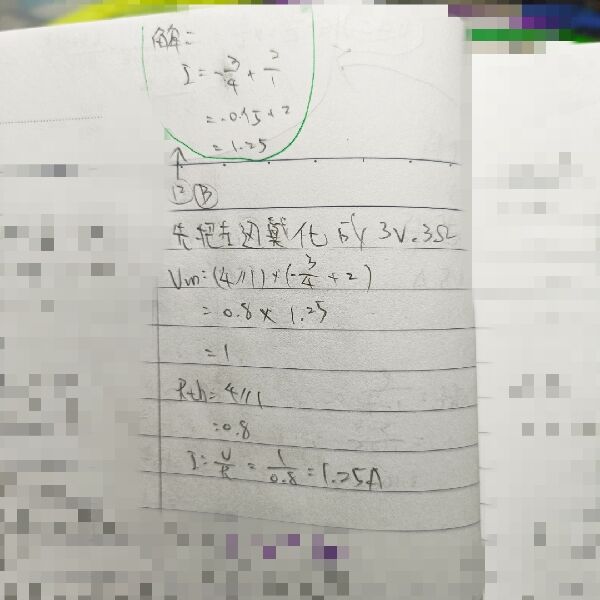 解:
I = -3/4 + 2/1
= -0.75 + 2
= 1.25
12 B
先把左边戴化成 3V.3Ω
Vth = (4//1) × (-3/4 + 2)
= 0.8 × 1.25
= 1
Rth = 4//1
= 0.8
I = U/R = 1/0.8 = 1.25A